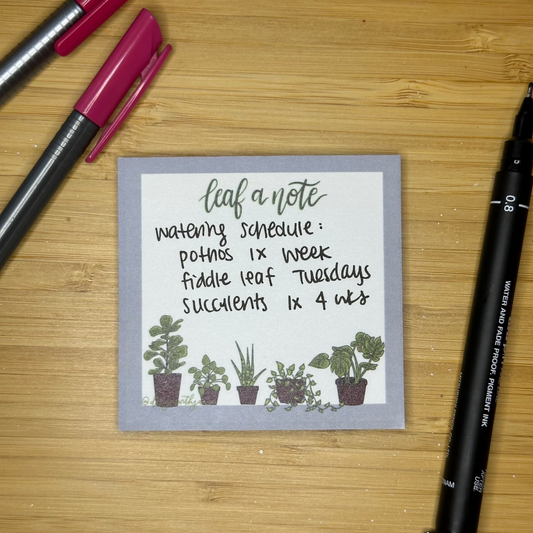 leaf a note
watering schedule:
pothos 1x week
fiddle leaf Tuesdays
succulents 1x 4 wks
0.8
WATER AND FADE PROOF, PIGMENT INK